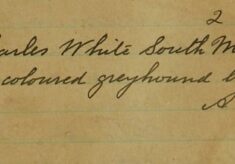 2
arles White South M
coloured greyhound b
S